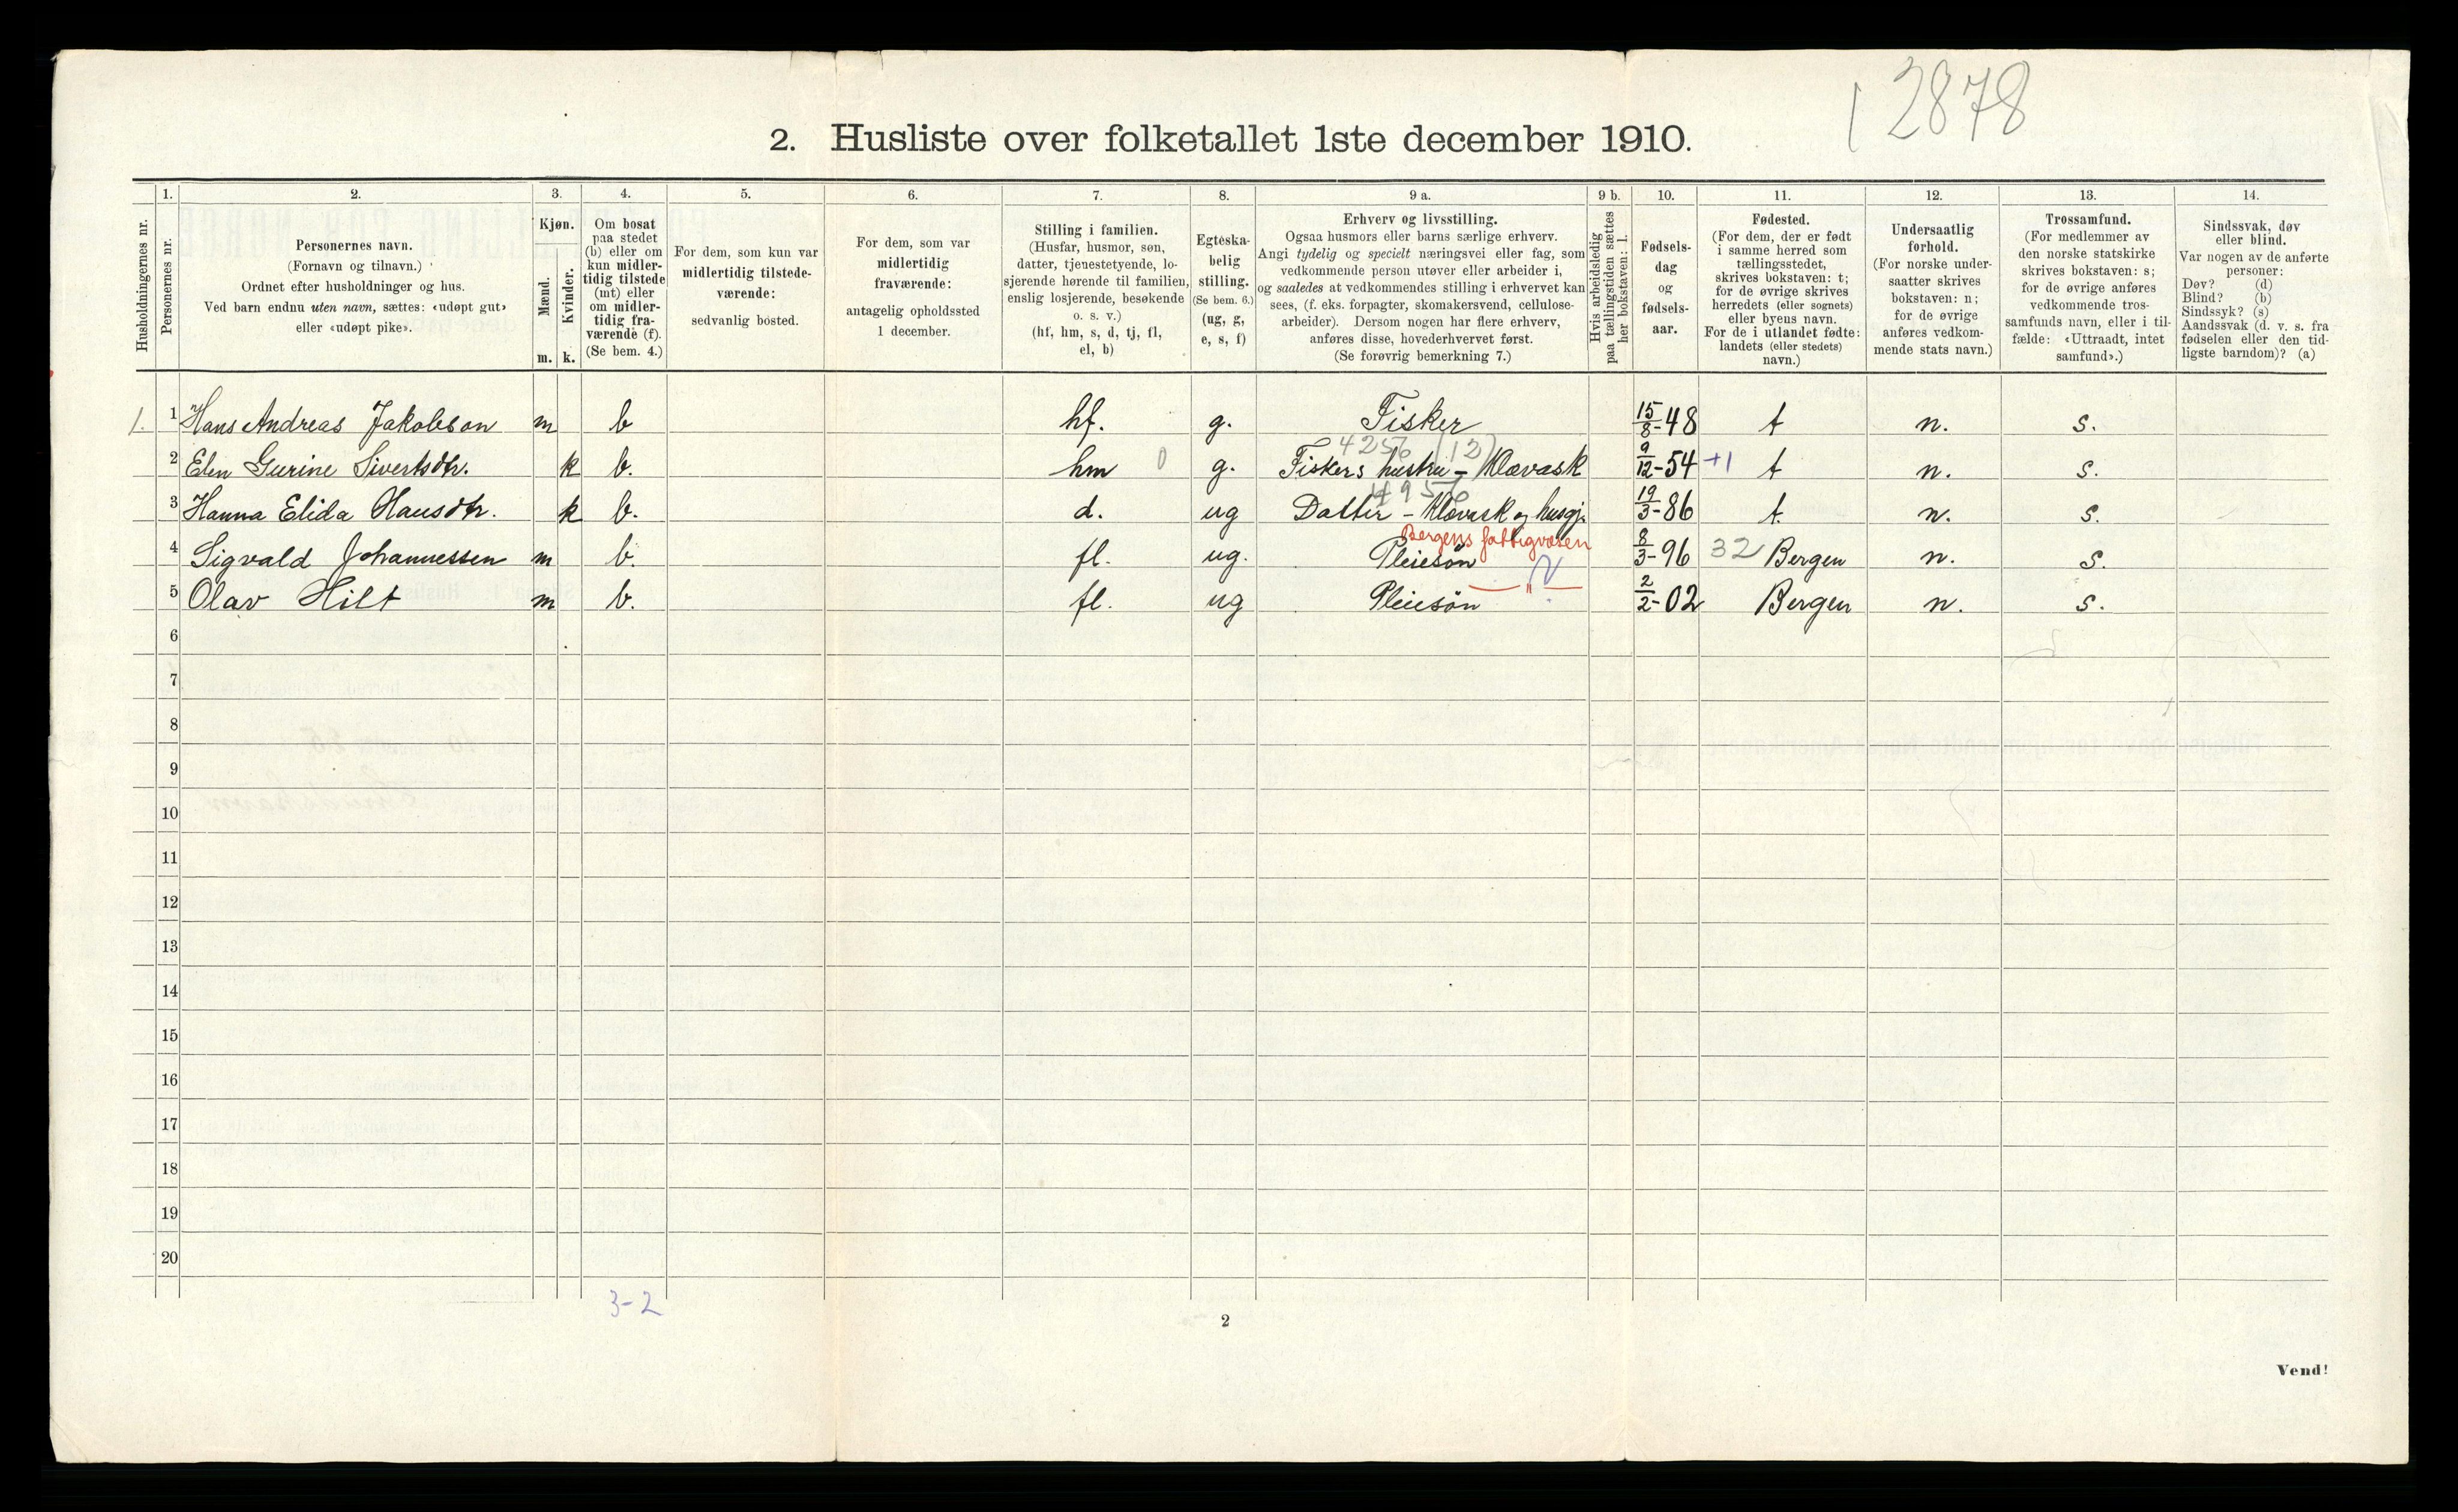 2878
2. Husliste over folketallet 1ste december 1910.
Husholdningernes nr.
1.
Personernes nr.
2.
Personernes navn.
(Fornavn og tilnavn.)
Ordnet efter husholdninger og hus.
Ved barn endnu uten navn, sættes: «udøpt gut»
eller «udøpt pike».
3.
Kjøn.
Mænd.
m.
Kvinder.
k.
4.
Om bosat
paa stedet
(b) eller om
kun midler-
tidig tilstede
(mt) eller
om midler-
tidig fra-
værende (f).
(Se bem. 4.)
5.
For dem, som kun var
midlertidig tilstede-
værende:
sedvanlig bosted.
6.
For dem, som var
midlertidig
fraværende:
antagelig opholdssted
1 december.
7.
Stilling i familien.
(Husfar, husmor, søn,
datter, tjenestetyende, lo-
sjerende hørende til familien,
enslig losjerende, besøkende
o. s. v.)
(hf, hm, s, d, tj, fl,
el, b)
8.
Egteska-
belig
stilling.
(Se bem. 6.)
(ug, g,
e, s, f)
9 a.
Erhverv og livsstilling.
Ogsaa husmors eller barns særlige erhverv.
Angi tydelig og specielt næringsvei eller fag, som
vedkommende person utøver eller arbeider i,
og saaledes at vedkommendes stilling i erhvervet kan
sees, (f. eks. forpagter, skomakersvend, cellulose-
arbeider). Dersom nogen har flere erhverv,
anføres disse, hovederhvervet først.
(Se forøvrig bemerkning 7.)
9 b.
Hvis arbeidsledig
paa tællingstiden sættes
her bokstaven: l.
10.
Fødsels-
dag
og
fødsels-
aar.
11.
Fødested.
(For dem, der er født
i samme herred som
tællingsstedet,
skrives bokstaven: t;
for de øvrige skrives
herredets (eller sognets)
eller byens navn.
For de i utlandet fødte:
landets (eller stedets)
navn.)
12.
Undersaatlig
forhold.
(For norske under-
saatter skrives
bokstaven: n;
for de øvrige
anføres vedkom-
mende stats navn.)
13.
Trossamfund.
(For medlemmer av
den norske statskirke
skrives bokstaven: s;
for de øvrige anføres
vedkommende tros-
samfunds navn, eller i til-
fælde: «Uttraadt, intet
samfund».)
14.
Sindssvak, døv
eller blind.
Var nogen av de anførte
personer:
Døv? (d)
Blind? (b)
Sindssyk? (s)
Aandssvak (d. v. s. fra
fødselen eller den tid-
ligste barndom)? (a)
1. 1 Hans Andreas Jakobson m b hf. g. Fisker 15/8-48 t n. s.
4256 (12)
2 Elen Gurine Sivertsdtr. k b. hm 0 g. Fiskers hustru - Kløvask 9/12-54 +1 t n. s.
4957
3 Hanna Elida Hansdtr. k b. d. ug Datter - Kløvask og husgj. 19/3-86 t. n. s.
Bergens fattigvæsen
4 Sigvald Johannessen m b. fl. ug. Pleiesøn 8/3-96 32 Bergen n. s.
— " —
5 Olav Hilt m b. fl. ug Pleiesøn 2/2-02 Bergen n. s.
6
7
8
9
10
11
12
13
14
15
16
17
18
19
20
3-2
2
Vend!